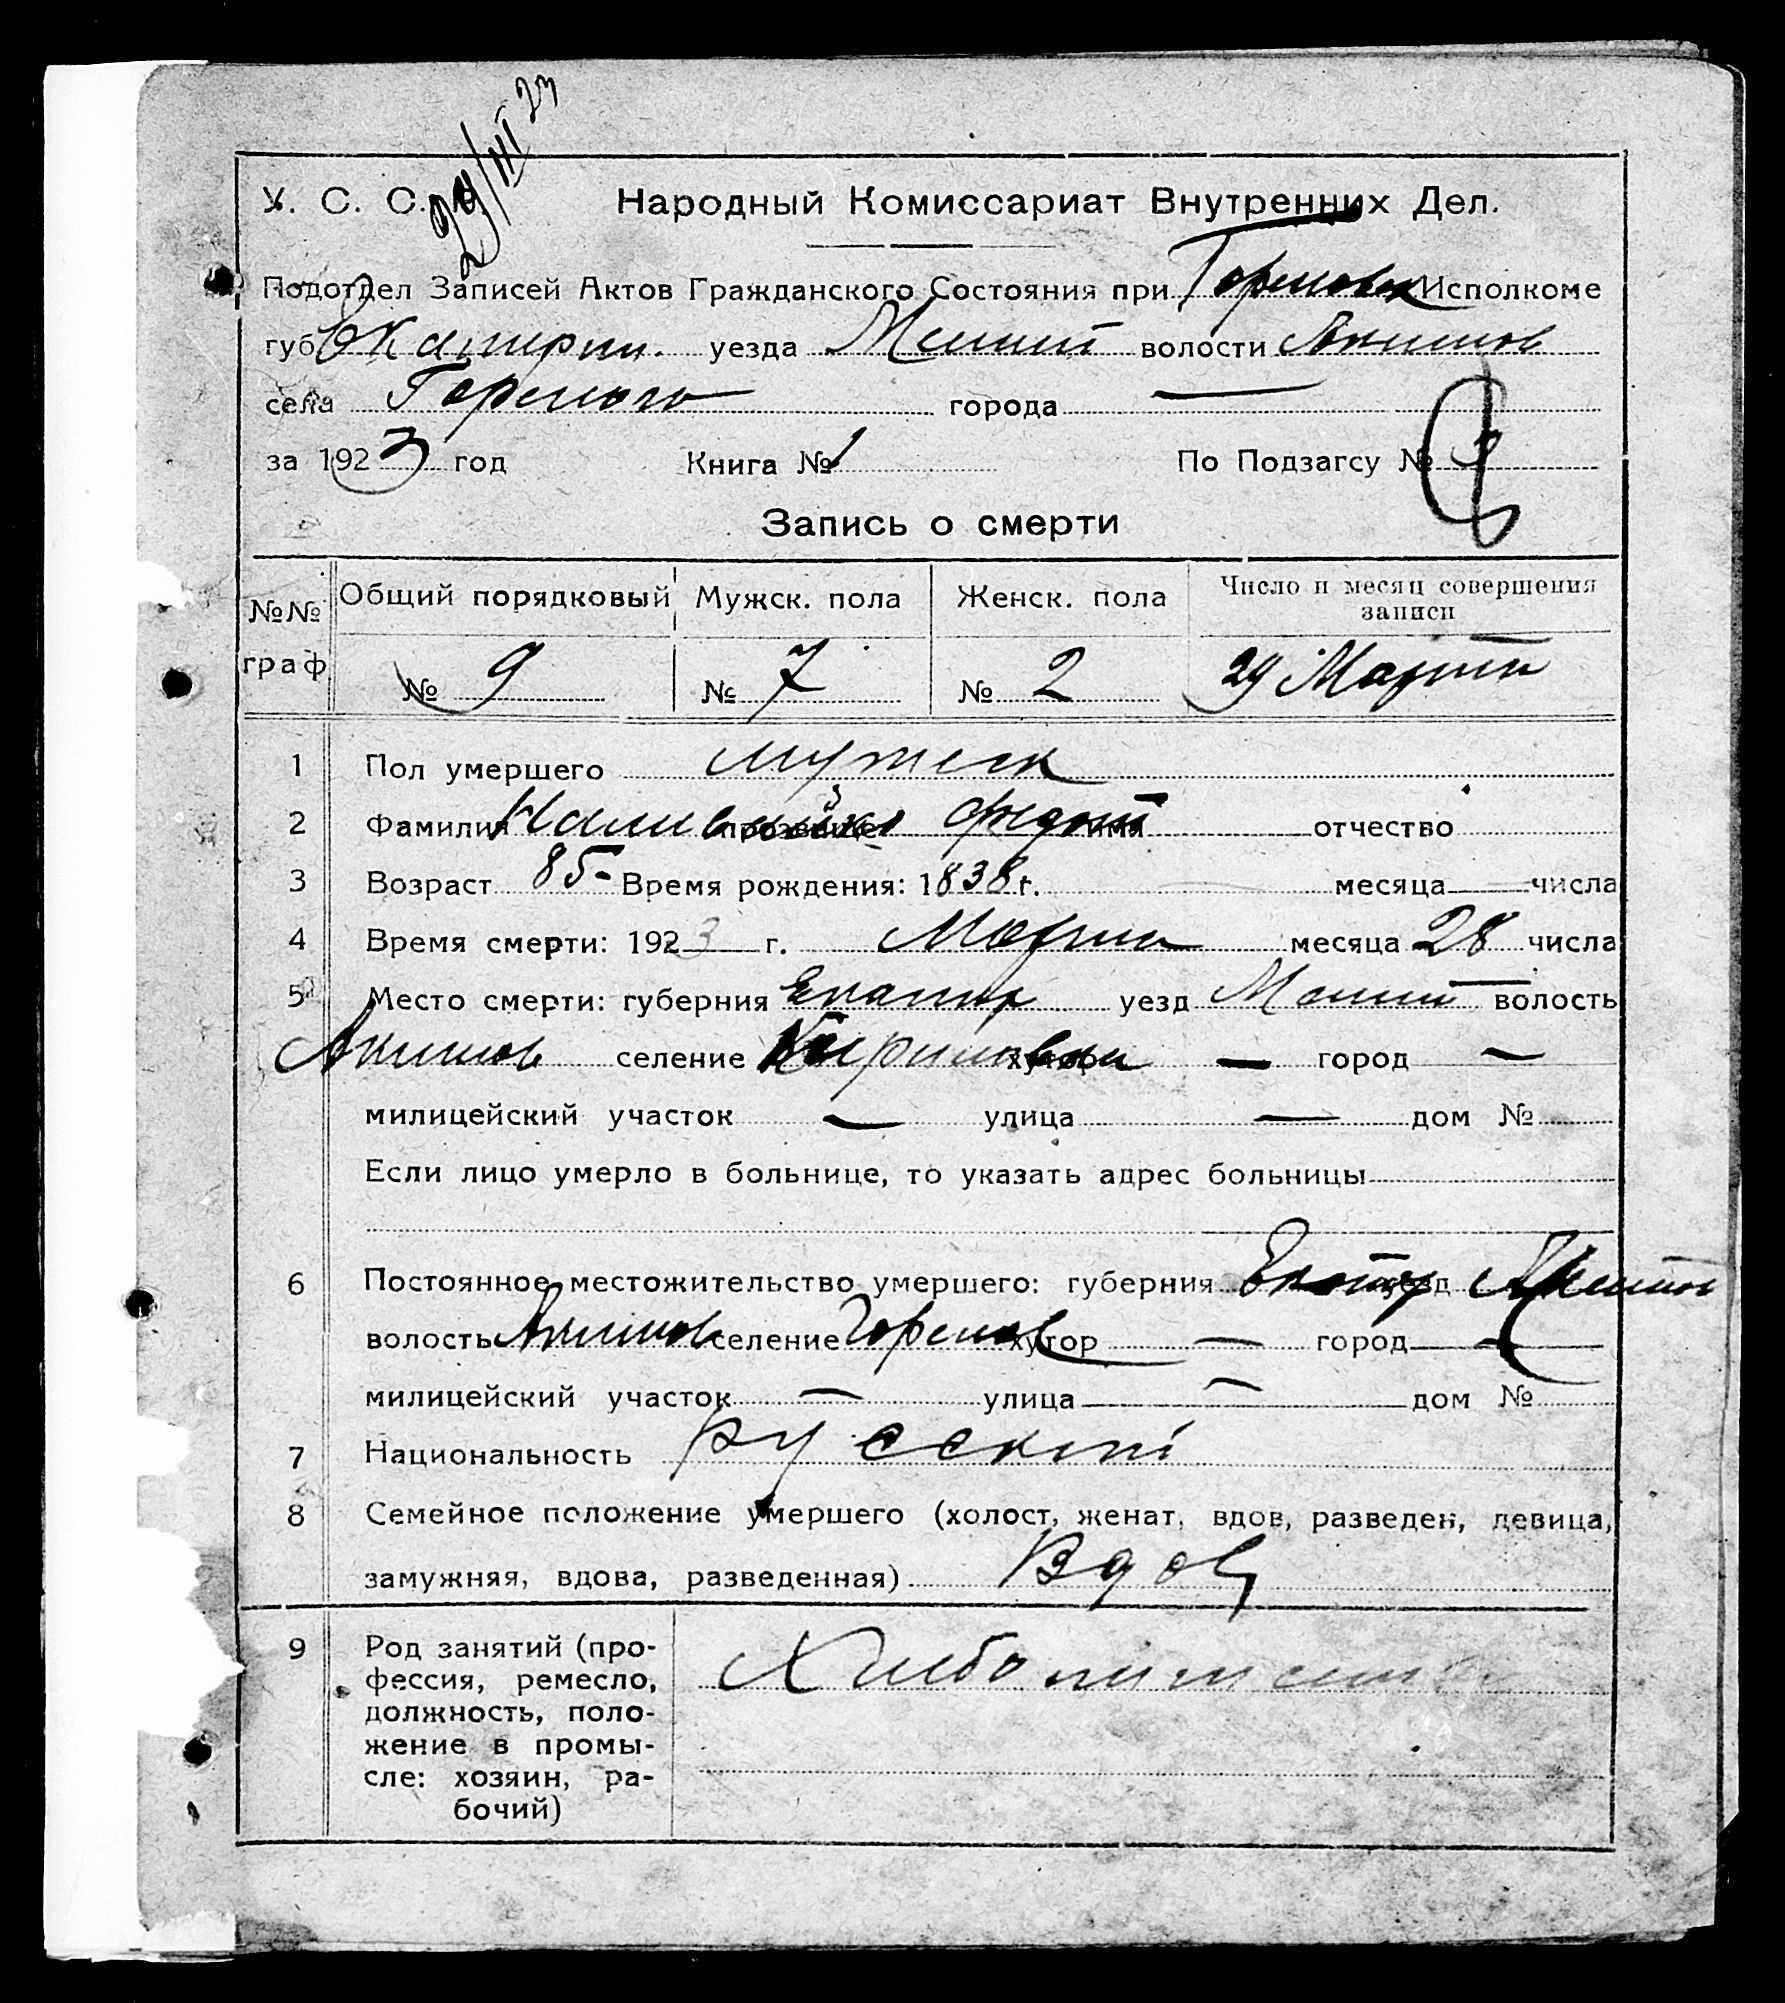 29/III 23
У. С. С. Народный Комиссариат Внутренних Дел.
Подотдел Записей Актов Гражданского Состояния при Исполкоме
губ Екатерин. уезда Мелит волости Акимов
села города —
за 1923 год Книга № 1 По Подзагсу №
Запись о смерти
№№ граф Общий порядковый Мужск. пола Женск. пола Число и месяц совершения записи
№ 9 № 7 № 2 29 Марта
1 Пол умершего мужеск
2 Фамилия прозвище Федот имя отчество
3 Возраст 85 - Время рождения: 1838 г. — месяца — числа
4 Время смерти: 1923 г. Марта месяца 28 числа
5 Место смерти: губерния Екатер уезд Мелит волость
Акимов селение хутор — город —
милицейский участок — улица — дом №
Если лицо умерло в больнице, то указать адрес больницы
6 Постоянное местожительство умершего: губерния Екатер уезд
волость Акимов селение хутор — город —
милицейский участок — улица — дом №
7 Национальность русский
8 Семейное положение умершего (холост, женат, вдов, разведен, девица,
замужняя, вдова, разведенная) Вдов
9 Род занятий (про-
фессия, ремесло,
должность, поло-
жение в промы-
сле: хозяин, ра-
бочий)